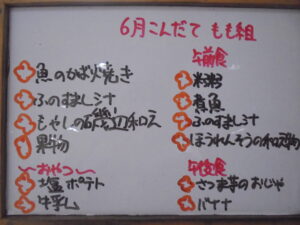 6月こんだて もも組
魚のかば焼き
ふのすまし汁
もやしの磯辺和え
果物
〜おやつ〜
塩ポテト
牛乳
午前食
米粥
煮魚
ふのすまし汁
ほうれんそうの和え物
午後食
さつま芋のおじや
バナナ